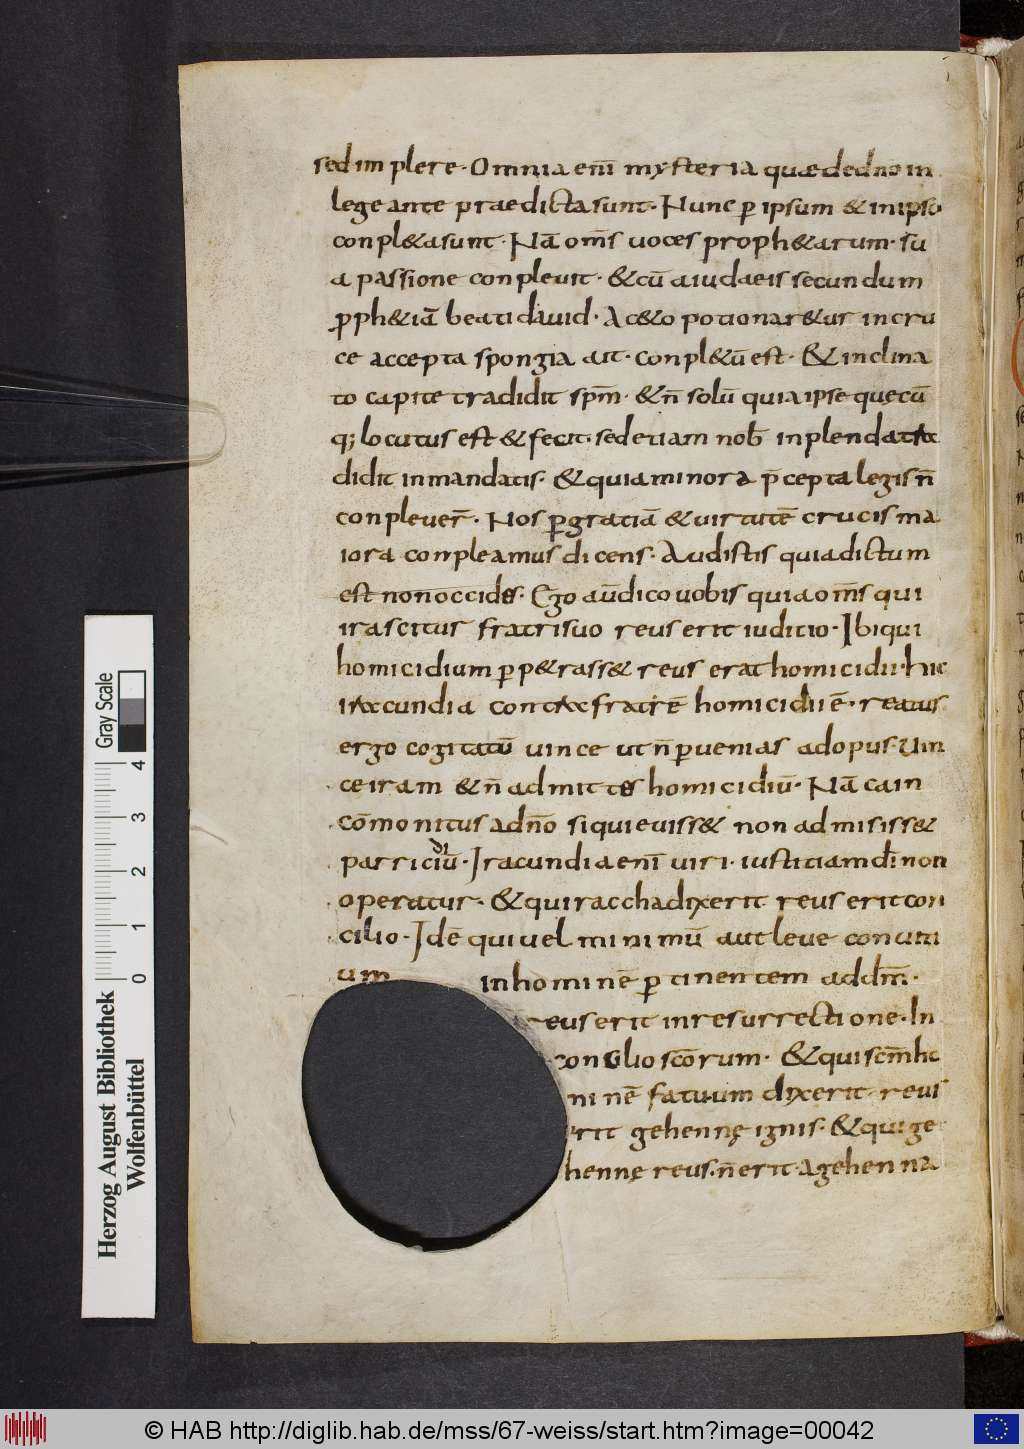 sed implere. Omnia eni̅ mysteria quae de dn̅o in
lege ante praedicta sunt. Nunc ꝑ ipsum & in ipso
conpl&a sunt. Na̅ om̅s uoces proph&arum. su
a passione conpleuit. & cu̅ a iudaeis secundum
ꝓph&ia̅ beati dauid. Ac&o potionar&ur in cru
ce accepta spongia ait. conpl&u̅ est. & inclina
to capite tradidit sp̅m. & n̅ solu̅ quia ipse quecu̅
q; locutus est & fecit. sed etiam nob̅ inplenda tra
didit in mandatis. & quia minora p̅cepta legis n̅
conpleuer̅. Nos ꝑ gratia̅ & uirtute̅ crucis ma
iora conpleamus dicens. Audistis quia dictum
est non occides. Ego au̅ dico uobis quia om̅s qui
irascitus fratri suo reus erit iuditio. Ibi qui
homicidium ꝑp&rass& reus erat homicidii. hic
iracundia contra fratre̅ homicidii e̅. reatus
ergo cogitatu̅ uince ut n̅ ꝑuenias ad opus. Uin
ce iram & n̅ admittes homicidiu̅. Na̅ cain
co̅monitus a dn̅o si quieuiss& non admisiss&
parricidiu̅. Iracundia eni̅ uiri. iustitiam di̅ non
operatur. & qui raccha dixerit reus erit con
cilio. Ide̅ qui uel minimu̅ aut leue conuiti
um in homine̅ ꝑtinentem ad dm̅.
reus erit in resurrectione. In
concilio sco̅rum. & qui sem̅ ho
mine̅ fatuum dixerit. reus
erit gehennę ignis. & qui ge
hennę reus. n̅ erit a gehenna
Gray Scale
0 1 2 3 4
Herzog August Bibliothek
Wolfenbüttel
© HAB http://diglib.hab.de/mss/67-weiss/start.htm?image=00042